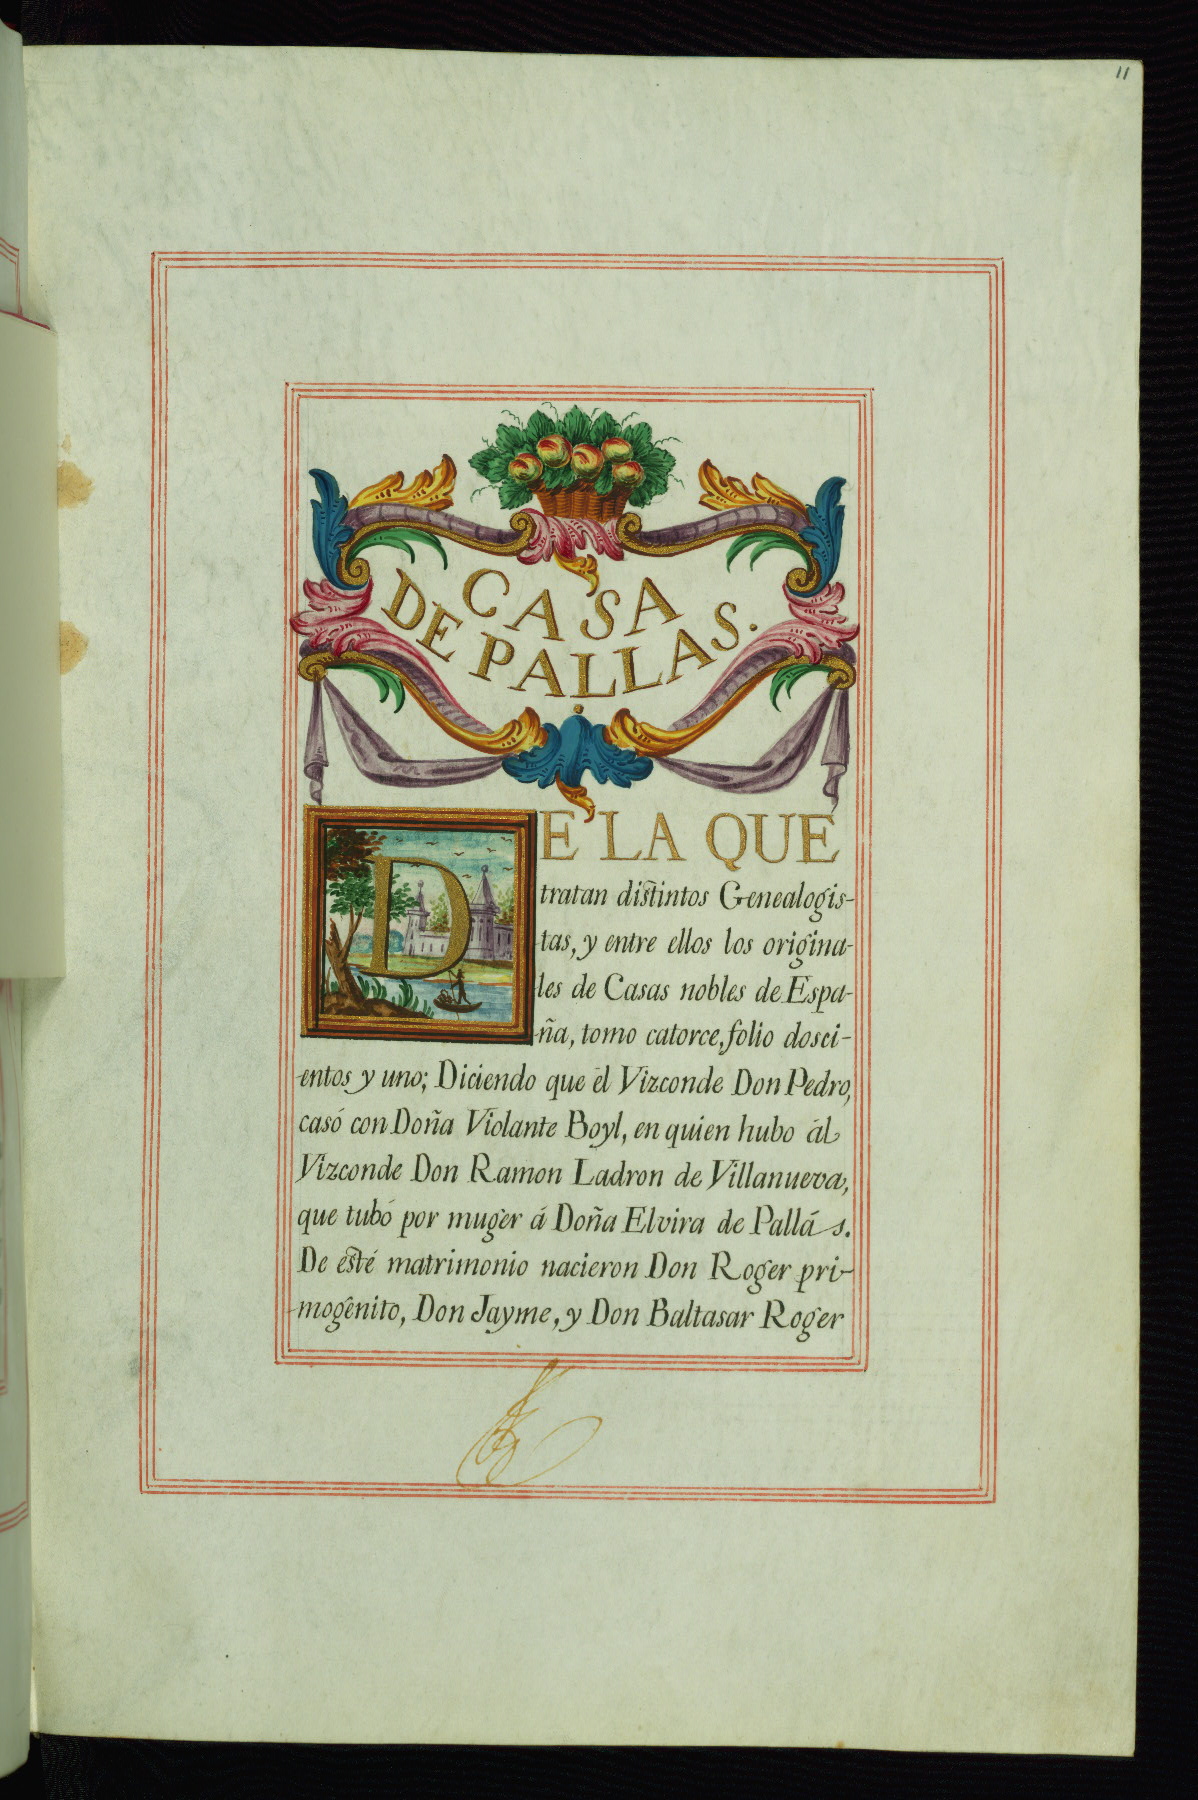 11
CASA
DE PALLAS.
DE LA QUE
tratan distintos Genealogis-
tas, y entre ellos los origina-
les de Casas nobles de Espa-
ña, tomo catorce, folio dosci-
entos y uno; Diciendo que él Vizconde Don Pedro,
casó con Doña Violante Boyl, en quien hubo ál
Vizconde Don Ramon Ladron de Villanueva,
que tubó por muger á Doña Elvira de Pallás.
De esté matrimonio nacieron Don Roger pri-
mogenito, Don Jayme, y Don Baltasar Roger